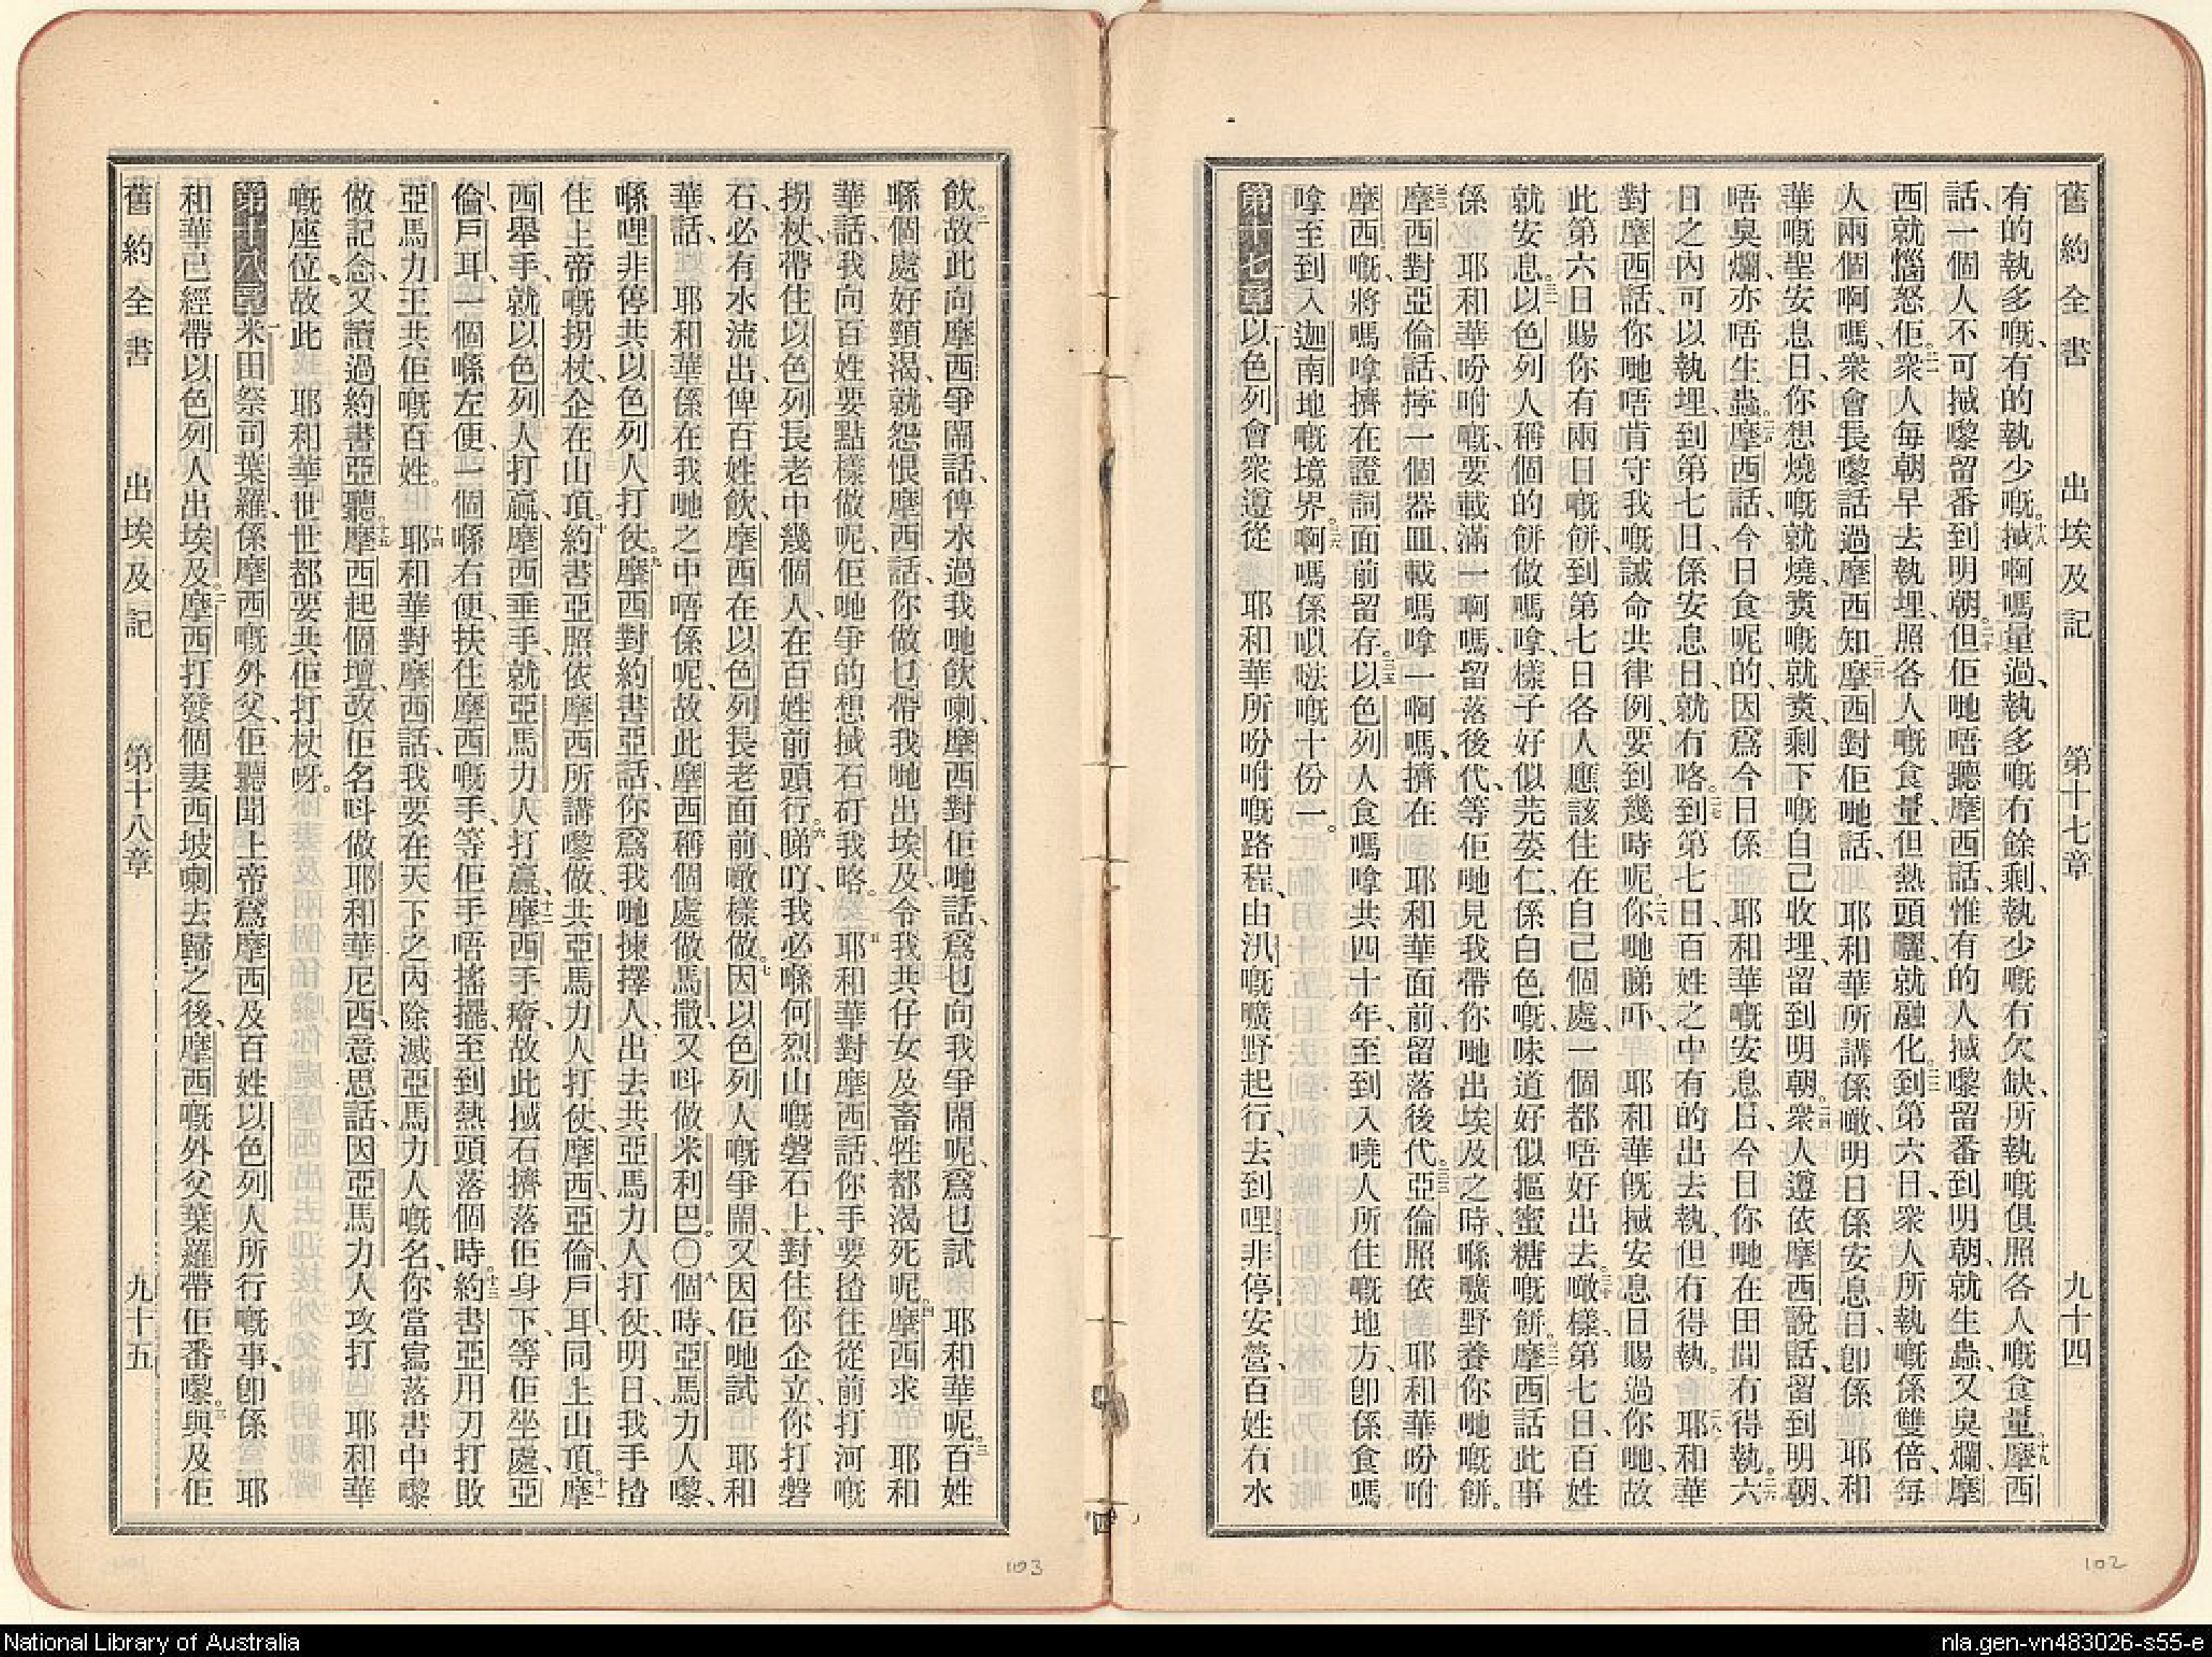 舊約全書 出埃及記 第十七章 九十四
有的執多嘅、有的執少嘅。十八搣啊嗎量過、執多嘅冇餘剩、執少嘅冇欠缺、所執嘅俱照各人嘅食量。十九摩西
話、一個人不可搣嚟留番到明朝。二十但佢哋唔聽摩西話、惟有的人搣嚟留番到明朝、就生蟲、又臭爛、摩
西就惱怒佢。二一衆人每朝早去執埋、照各人嘅食量、但熱頭曬、就融化。二二到第六日、衆人所執嘅係雙倍、每
人兩個啊嗎、衆會長嚟話過摩西知。二三摩西對佢哋話、耶和華所講係噉、明日係安息日、卽係 耶和
華嘅聖安息日、你想燒嘅就燒、煑嘅就煑、剩下嘅自己收埋、留到明朝。二四衆人遵依摩西說話、留到明朝、
唔臭爛、亦唔生蟲。二五摩西話、今日食呢的、因爲今日係 耶和華嘅安息日、今日你哋在田間冇得執。二六六
日之內可以執埋、到第七日、係安息日、就冇咯。二七到第七日、百姓之中有的出去執、但冇得執。二八 耶和華
對摩西話、你哋唔肯守我嘅誡命共律例、要到幾時呢。二九你哋睇吓、 耶和華旣搣安息日賜過你哋、故
此第六日賜你有兩日嘅餅、到第七日各人應該住在自己個處、一個都唔好出去。三十噉樣、第七日、百姓
就安息。三一以色列人稱個的餅做嗎嗱、樣子好似芫荽仁、係白色嘅、味道好似摳蜜糖嘅餅。三二摩西話、此事
係 耶和華吩咐嘅、要載滿一啊嗎、留落後代、等佢哋見我帶你哋出埃及之時、喺曠野養你哋嘅餅。
三三摩西對亞倫話、擰一個器皿、載嗎嗱一啊嗎、擠在 耶和華面前、留落後代。三四亞倫照依 耶和華吩咐
摩西嘅、將嗎嗱擠在證詞面前留存。三五以色列人食嗎嗱共四十年、至到入曉人所住嘅地方、卽係食嗎
嗱至到入迦南地嘅境界。三六啊嗎係㕥㗇嘅十份一。
第十七章 一以色列會衆遵從 耶和華所吩咐嘅路程、由汛嘅曠野起行、去到哩非停安營、百姓冇水
飲。二故此向摩西爭鬧話、俾水過我哋飲喇、摩西對佢哋話、爲乜向我爭鬧呢、爲乜試 耶和華呢。三百姓
喺個處好頸渴、就怨恨摩西話、你做乜帶我哋出埃及、令我共仔女及畜牲都渴死呢。四摩西求 耶和
華話、我向百姓要點樣做呢、佢哋爭的想搣石矴我咯。五 耶和華對摩西話、你手要揸往從前打河嘅
拐杖、帶住以色列長老中幾個人、在百姓前頭行。六睇吖、我必喺何烈山嘅磐石上、對住你企立、你打磐
石、必有水流出、俾百姓飲、摩西在以色列長老面前、噉樣做。七因以色列人嘅爭鬧、又因佢哋試 耶和
華話、 耶和華係在我哋之中唔係呢、故此摩西稱個處做馬撒、又呌做米利巴。〇八個時、亞馬力人嚟、
喺哩非停共以色列人打仗。九摩西對約書亞話、你爲我哋揀擇人、出去共亞馬力人打仗、明日、我手揸
住上帝嘅拐杖、企在山頂。十約書亞照依摩西所講嚟做、共亞馬力人打仗、摩西、亞倫、戶耳、同上山頂。十一摩
西舉手、就以色列人打贏、摩西垂手、就亞馬力人打贏。十二摩西手瘡、故此搣石擠落佢身下、等佢坐處、亞
倫、戶耳、一個喺左便、一個喺右便、扶住摩西嘅手、等佢手唔搖擺、至到熱頭落個時。十三約書亞用刀打敗
亞馬力王共佢嘅百姓。十四 耶和華對摩西話、我要在天下之內除滅亞馬力人嘅名、你當寫落書中嚟
做記念、又讀過約書亞聽。十五摩西起個壇、改佢名呌做耶和華尼西、意思話、因亞馬力人攻打 耶和華
嘅座位、故此 耶和華世世都要共佢打杖呀。
第十八章 一米田祭司葉羅、係摩西嘅外父、佢聽聞上帝爲摩西及百姓以色列人所行嘅事、卽係 耶
和華已經帶以色列人出埃及。二摩西打發個妻西坡喇去歸之後、摩西嘅外父葉羅帶佢番嚟。三與及佢
舊約全書 出埃及記 第十八章 九十五
四
102
103
National Library of Australia
nla.gen-vn483026-s55-e